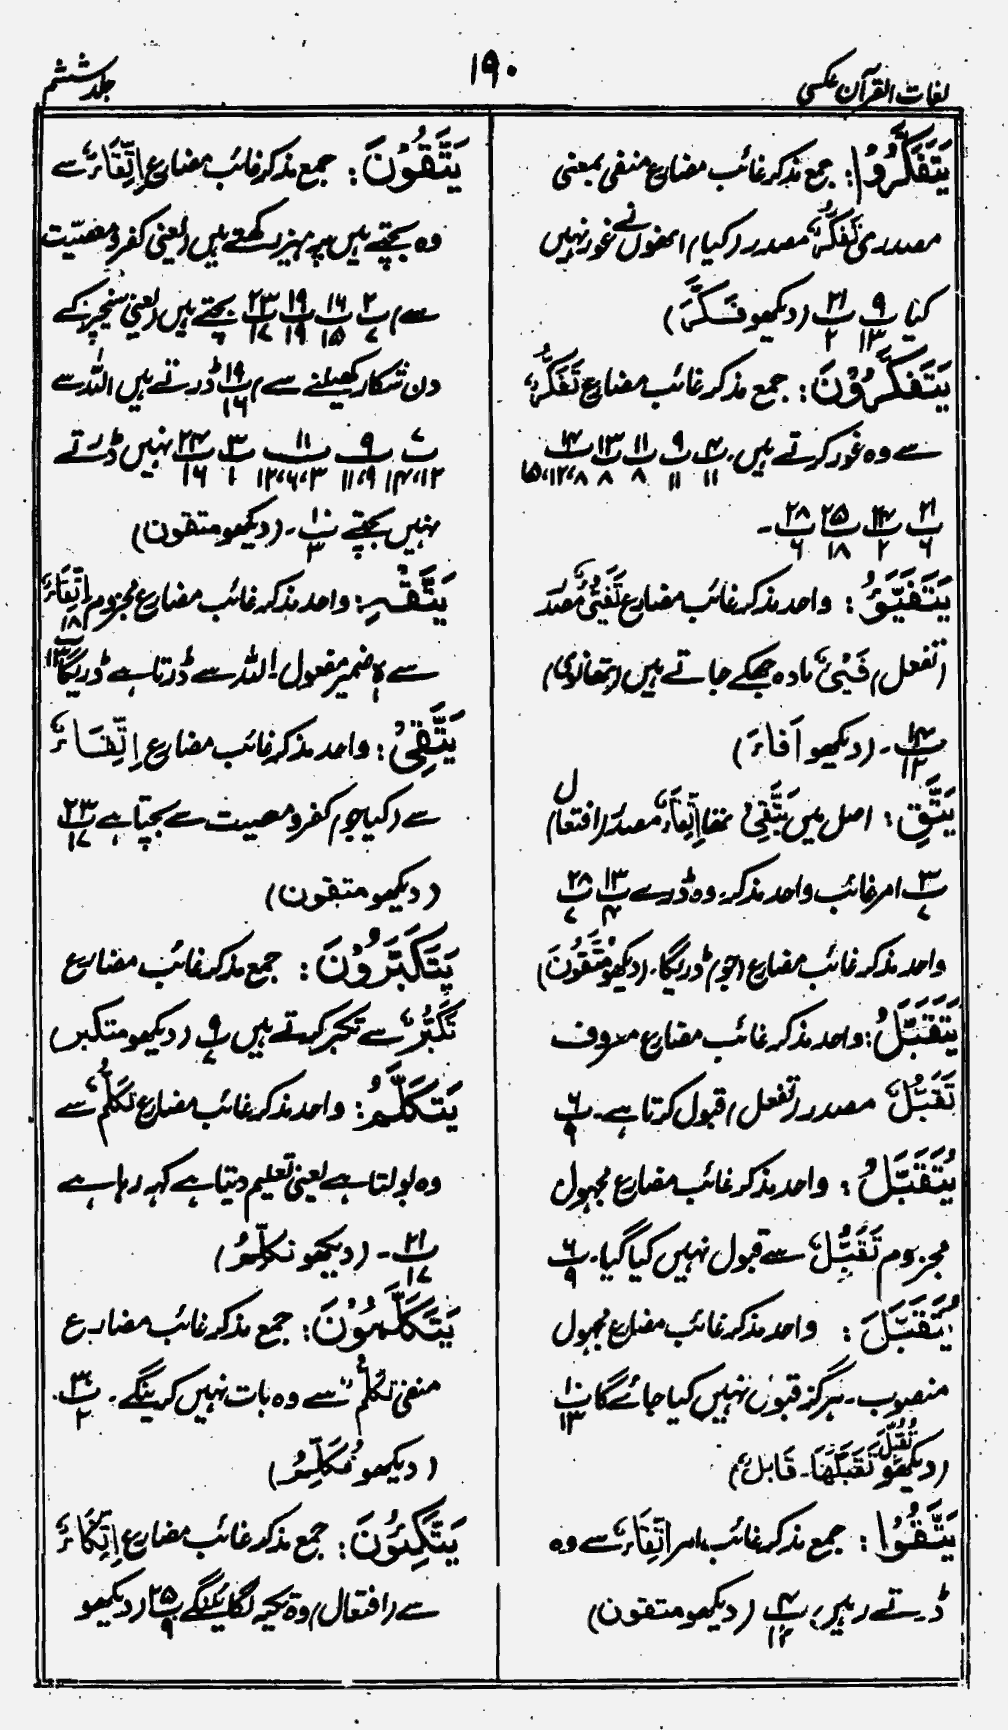 لغات القرآن عکسی
۱۹۰
جلد ششم
یَتَفَکَّرُوْا: جمع مذکر غائب مضارع منفی بمعنی
مصدری تَفَکُّرٌ مصدر (کیا) انھوں نے غور نہیں
کیا ۹پ۱۳ ۲۱پ۲ (دیکھو فَکَّرَ)
یَتَفَکَّرُوْنَ: جمع مذکر غائب مضارع تَفَکُّرٌ
سے وہ غور کرتے ہیں۔ ۴پ۱۱ ۹پ۱۱ ۱۱پ۸ ۱۳پ۸ ۱۴پ۸،۱۲،۱۵
۲۱پ۶ ۲۴پ۲ ۲۵پ۱۸ ۲۸پ۶۔
یَتَفَیَّؤُ: واحد مذکر غائب مضارع تَفَیُّئٌ مصدر
(تفعل) فَیْئٌ مادہ جھکے جاتے ہیں (تھانوی)
۱۴پ۱۲۔ (دیکھو اَفَاءَ)
یَتَّقِ: اصل میں یَتَّقِیْ تھا اِتِّقَاءٌ مصدر (افتعال)
۳پ۷ امر غائب واحد مذکر۔ وہ ڈرے ۱۳پ۴ ۲۸پ۷
واحد مذکر غائب مضارع (جو) ڈریگا۔ (دیکھو مُتَّقُوْنَ)
یَتَقَبَّلُ: واحد مذکر غائب مضارع معروف
تَقَبُّلٌ مصدر (تفعل) قبول کرتا ہے۔ ۶پ۹
یُتَقَبَّلْ: واحد مذکر غائب مضارع مجہول
مجزوم تَقَبُّلٌ سے قبول نہیں کیا گیا۔ ۶پ۹
یُتَقَبَّلَ: واحد مذکر غائب مضارع مجہول
منصوب۔ ہرگز قبول نہیں کیا جائے گا ۱۰پ۱۳
(دیکھو تُقُبِّلَ تَقَبَّلَهَا۔ قَابِلٌ)
یَتَّقُوْا: جمع مذکر غائب، امر اِتِّقَاءٌ سے وہ
ڈرتے رہیں؛ ۴پ۱۲ (دیکھو متقون)
یَتَّقُوْنَ: جمع مذکر غائب مضارع اِتِّقَاءٌ سے
وہ بچتے ہیں پرہیز رکھتے ہیں (یعنی کفر و معصیت
سے) ۲پ۷ ۱۶پ۱۵ ۱۹پ۱۹ ۲۳پ۱۷ بچتے ہیں (یعنی سنیچر کے
دن شکار کھیلنے سے) ۱۹پ۱۶ ڈرتے ہیں اللہ سے
۷پ۱۲،۱۴ ۹پ۹،۱۱ ۱۱پ۳،۶،۱۲ ۳پ۱ ۲۴پ۱۶ نہیں ڈرتے
نہیں بچتے ۱۰پ۳۔ (دیکھو متقون)
یَتَّقْہِ: واحد مذکر غائب مضارع مجزوم اِتِّقَاءٌ
سے ہٖ ضمیر مفعول۔ اللہ سے ڈرتا ہے ڈریگا ۱۸پ۱۳
یَتَّقِیْ: واحد مذکر غائب مضارع اِتِّقَاءٌ
سے (کیا جو) کفر و معصیت سے بچتا ہے ۲۳پ۱۷
(دیکھو متقون)
یَتَکَبَّرُوْنَ: جمع مذکر غائب مضارع
تَکَبُّرٌ سے تکبر کرتے ہیں ۹پ۷ (دیکھو متکبر)
یَتَکَلَّمُ: واحد مذکر غائب مضارع تَکَلُّمٌ سے
وہ بولتا ہے یعنی تعلیم دیتا ہے کہہ رہا ہے
۲۱پ۱۷۔ (دیکھو نکلِّمُ)
یَتَکَلَّمُوْنَ: جمع مذکر غائب مضارع
منفی تکلُّمٌ سے وہ بات نہیں کرینگے۔ ۳۰پ۲۔
(دیکھو نُکَلِّمُ)
یَتَّکِئُوْنَ: جمع مذکر غائب مضارع اِتِّکَاءٌ
سے (افتعال) وہ تکیہ لگائینگے ۲۵پ۹ (دیکھو